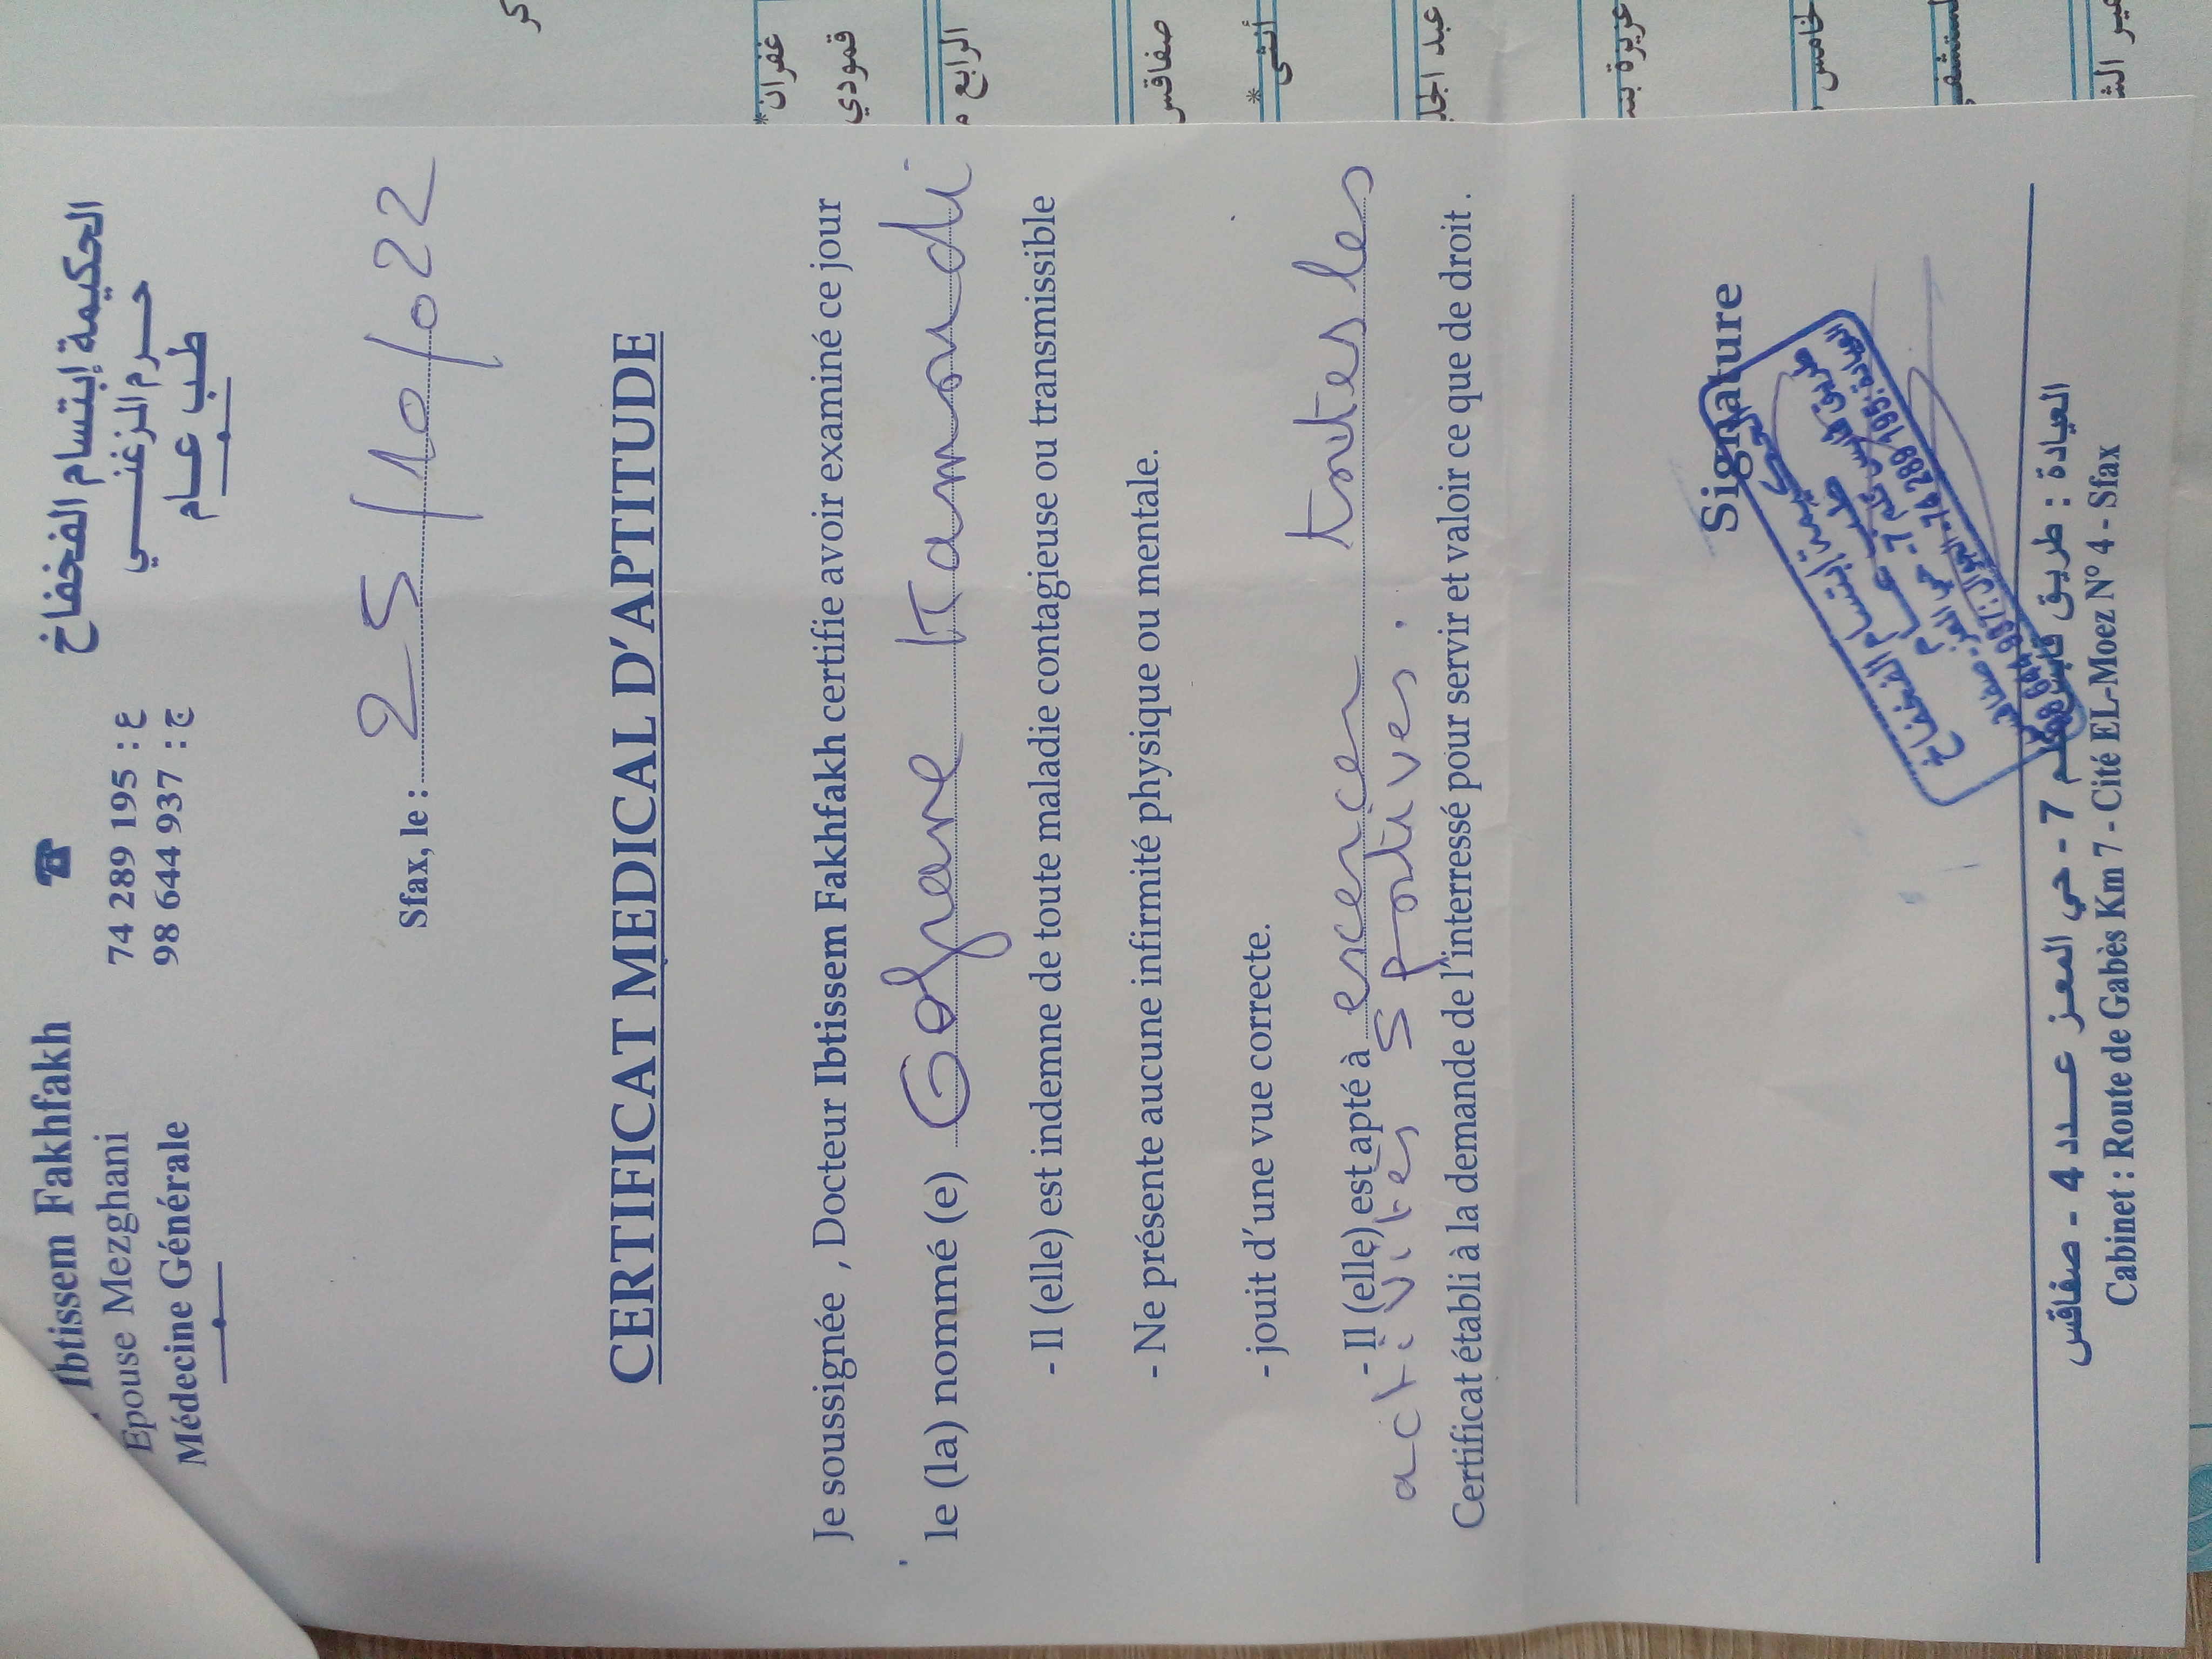 Ibtissem Fakhfakh
Epouse Mezghani
Médecine Générale
☎
74 289 195 : ع
98 644 937 : ج
الحكيمة إبتسام الفخفاخ
حرم المزغني
طب عام
Sfax, le : 25/10/022
CERTIFICAT MEDICAL D'APTITUDE
Je soussignée , Docteur Ibtissem Fakhfakh certifie avoir examiné ce jour
le (la) nommé (e) Gofrane Kamoudi
- Il (elle) est indemne de toute maladie contagieuse ou transmissible
- Ne présente aucune infirmité physique ou mentale.
- jouit d'une vue correcte.
- Il (elle) est apté à exercer toutes les
activites sportives.
Certificat établi à la demande de l'interressé pour servir et valoir ce que de droit .
Signature
الحكيمة ابتسام الفخفاخ
طب عام
طريق قابس كلم 7 - حي المعز - صفاقس
العيادة: 74 289 195 - الجوال: 98 644 937
العيادة : طريق قابس كلم 7 - حي المعز عدد 4 - صفاقس
Cabinet : Route de Gabès Km 7 - Cité EL-Moez N° 4 - Sfax
غفران
قمودي
الرابع
صفاقس
أنثى
عبد الجل
عزيزة بنت
الخامس